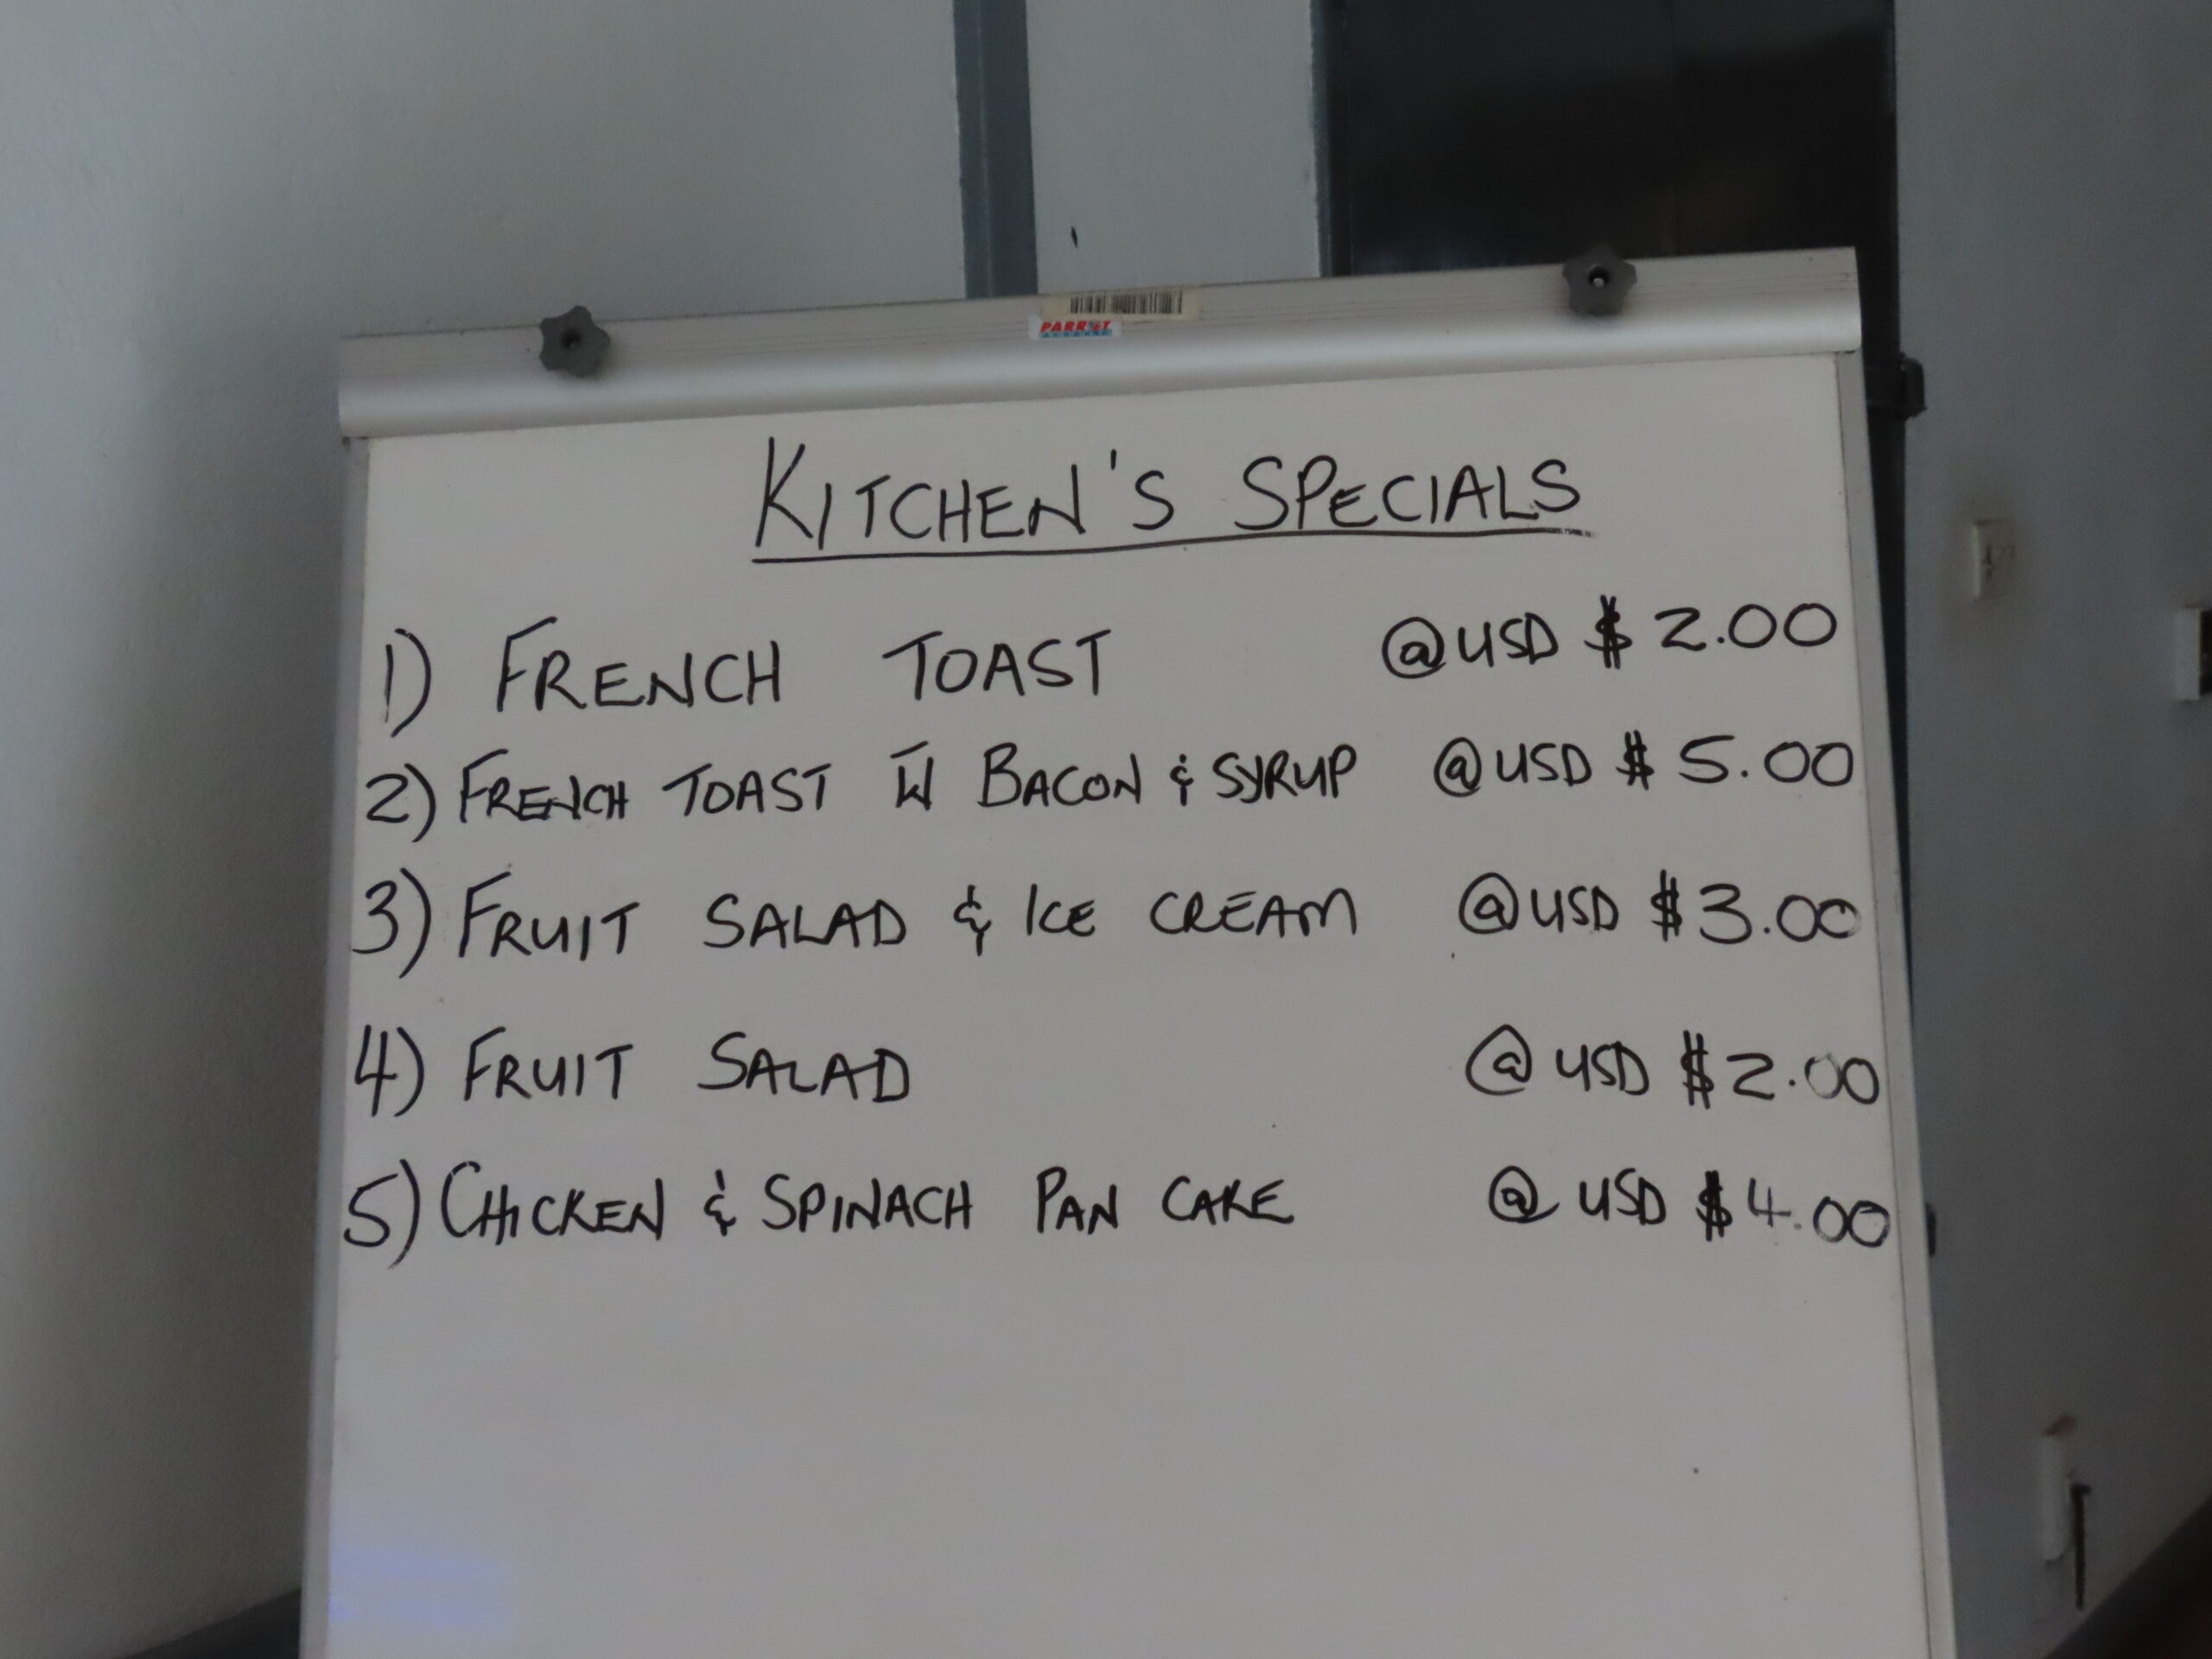 PARROT
PRODUCTS
KITCHEN'S SPECIALS
1) FRENCH TOAST @USD $2.00
2) FRENCH TOAST W̄ BACON & SYRUP @USD $5.00
3) FRUIT SALAD & ICE CREAM @USD $3.00
4) FRUIT SALAD @ USD $2.00
5) CHICKEN & SPINACH PAN CAKE @ USD $4.00